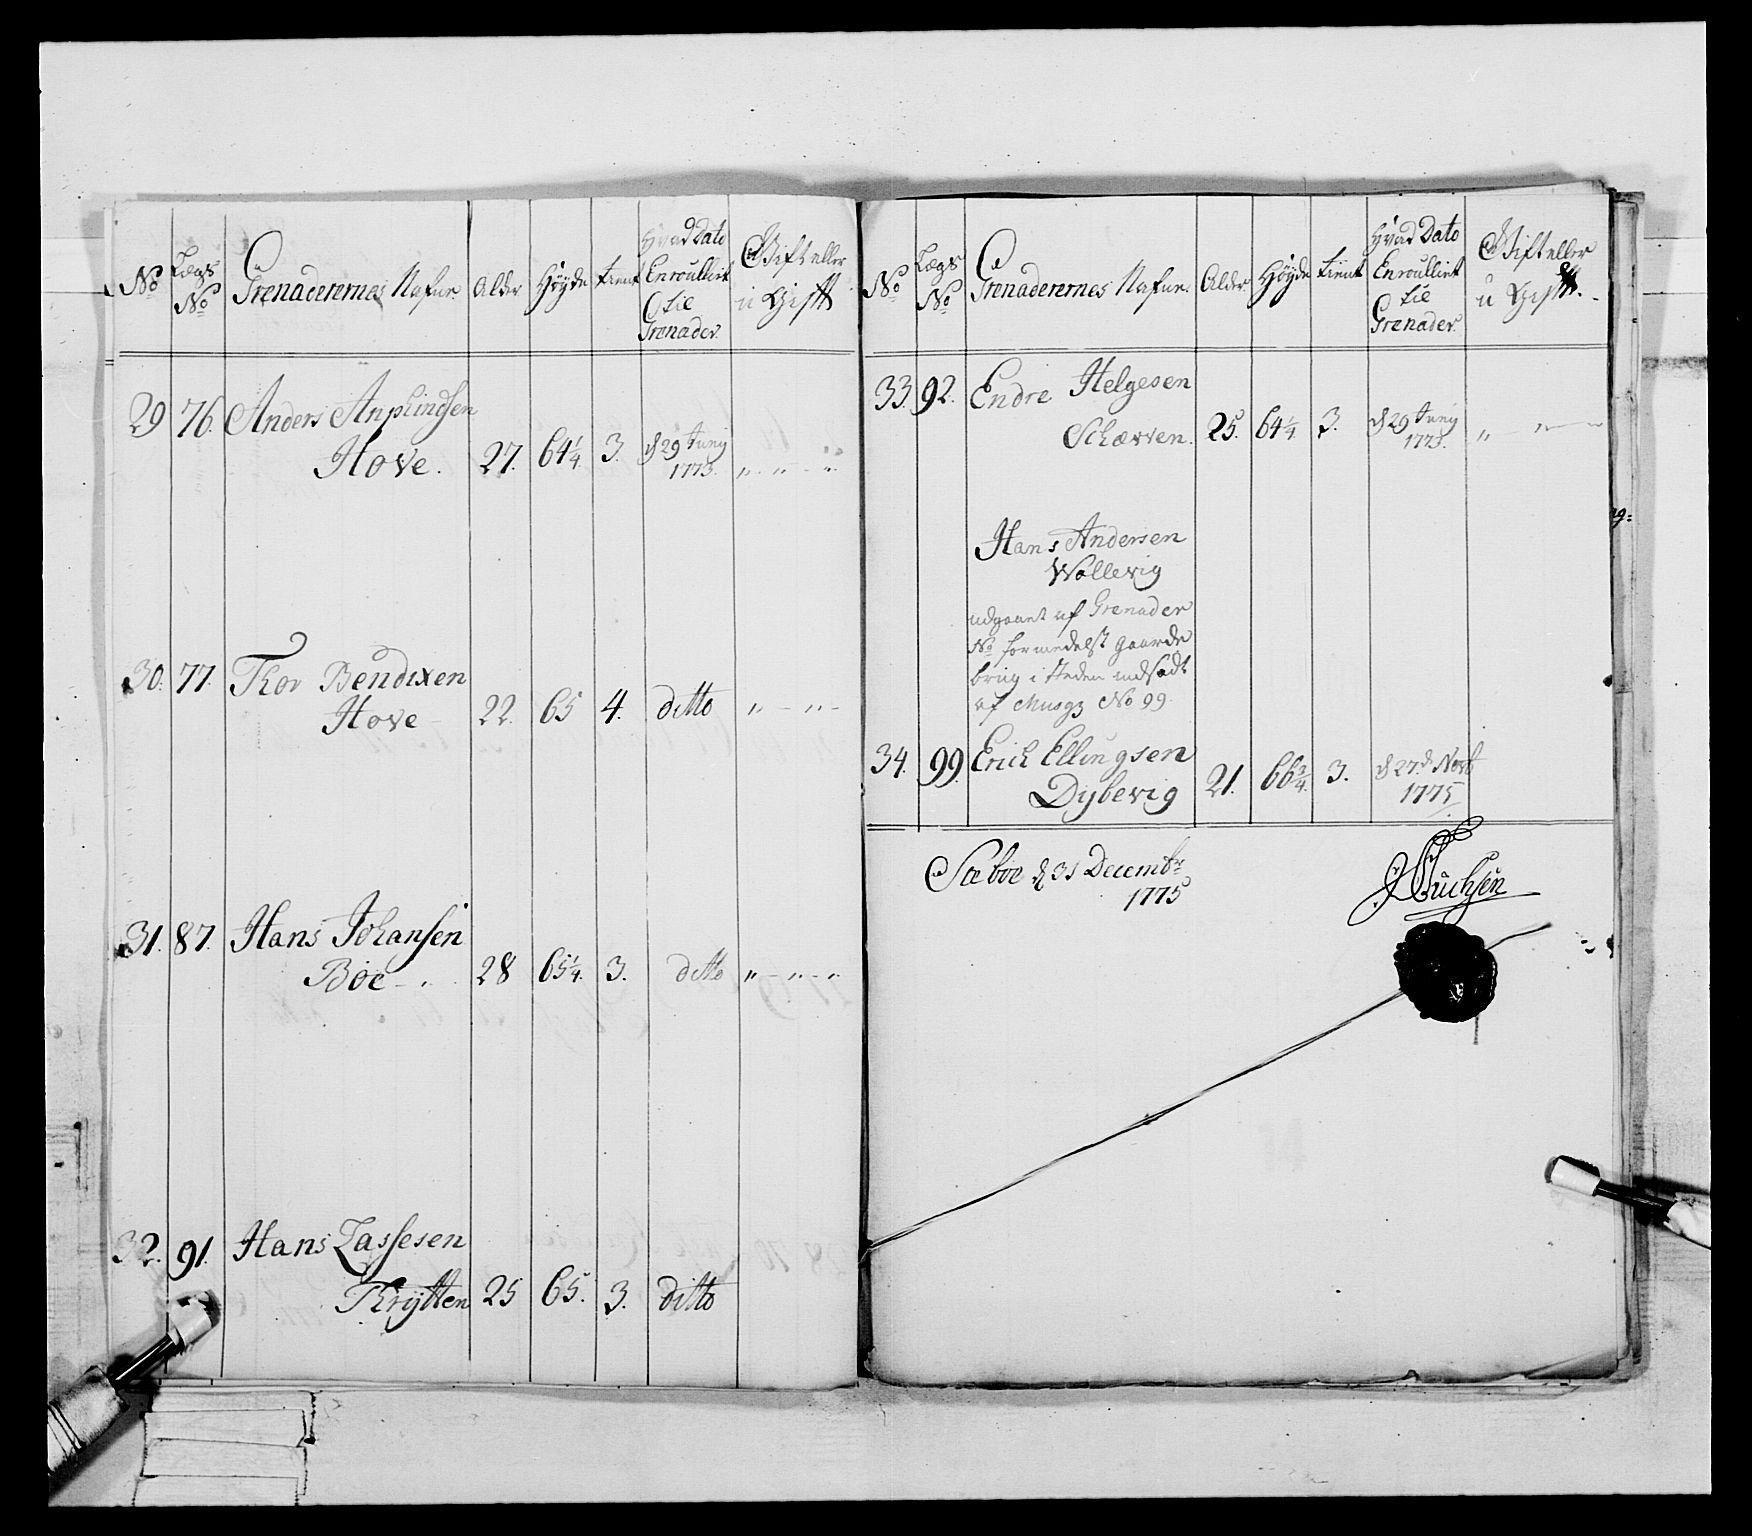 No
Lægs No
Grenaderernes Nafne.
Alder
Høyde
tient
Hvad Dato Enroullirt til Grenader.
Gift eller u Gift
29 76. Anders Anphindsen
Hove. 27. 64 1/4 3. d 29 Juny 1773. " - " - "
30. 77. Thor Bendixen
Hove 22. 65 4. ditto " - " -
31. 87. Hans Johansen
Böe - . 28 65 1/4. 3. ditto " - " - "
32. 91. Hans Lassesen
Thrytten 25 65. 3. ditto
No
Lægs No
Grenaderernes Nafne.
Alder
Høyde
tient
Hvad Dato Enroullirt til Grenader.
Gift eller u Gift.
33. 92. Endre Helgesen
Schævven. 25. 64 1/4 3. d 29 Juny 1773. " - " -
Hans Andersen
Wallevig
udgaaet af Grenader
No formedelst gaards
brug i steden indsadt
af Musqz No 99.
34. 99. Erich Ellingsen
Dybevig 21. 66 3/4. 3. d 27de Novb 1775
Sæbøe d 31 Decembr
1775